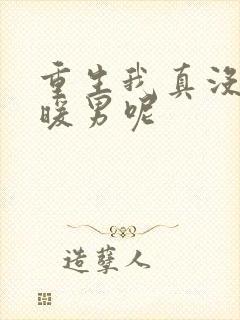 重生我真没
暖男呢
造孽人